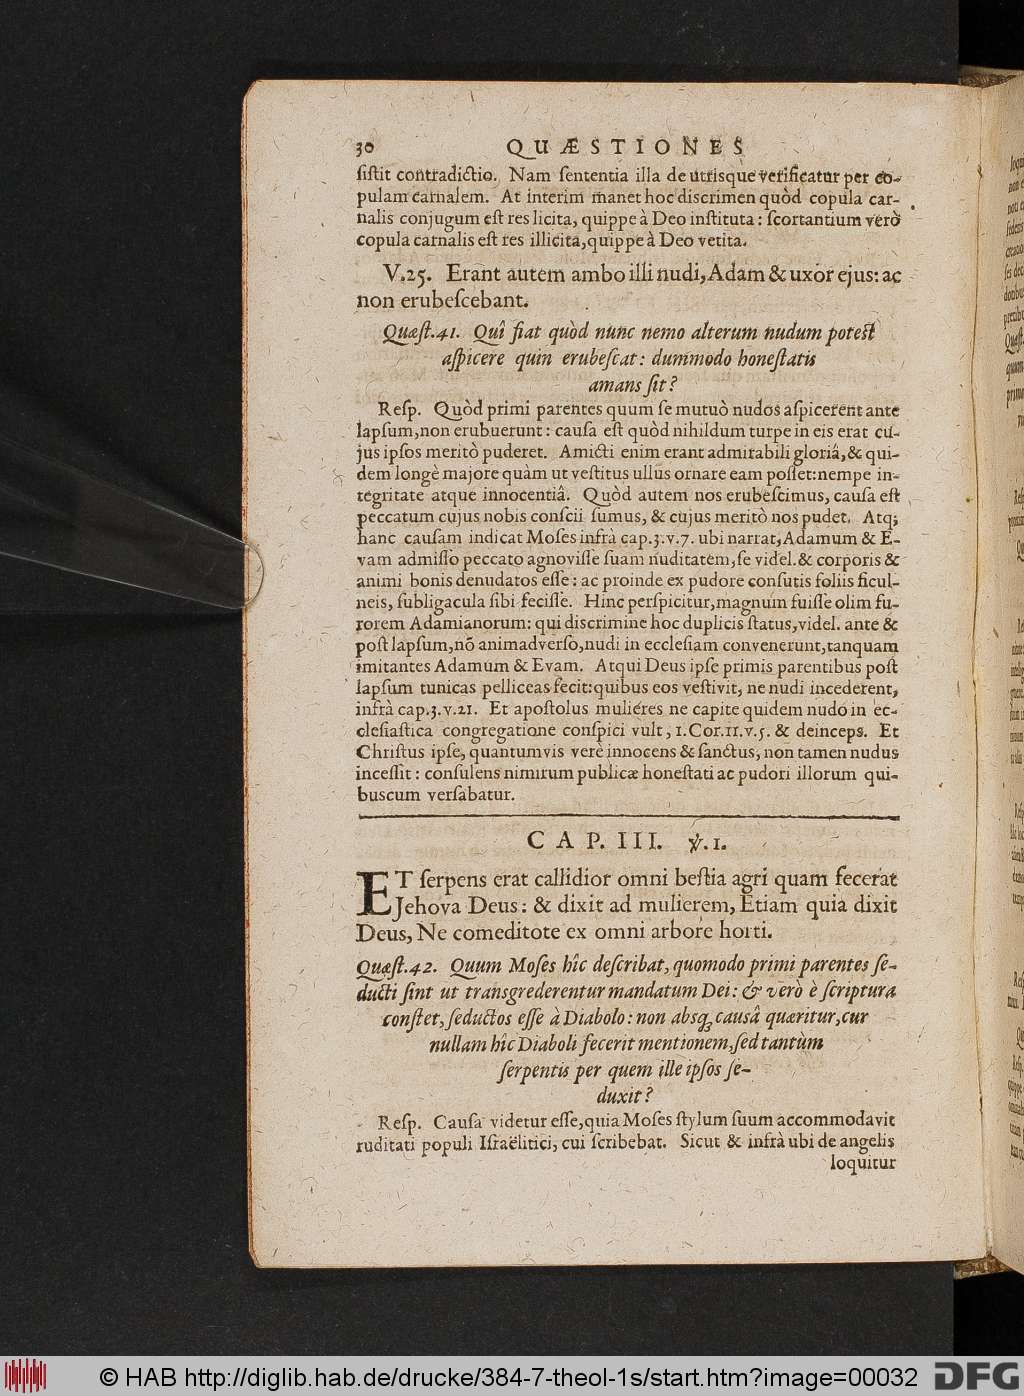 30 QUÆSTIONES
ſiſtit contradictio. Nam ſententia illa de utrisque verificatur per co-
pulam carnalem. At interim manet hoc discrimen quòd copula car-
nalis conjugum eſt res licita, quippe à Deo inſtituta: ſcortantium verò
copula carnalis eſt res illicita, quippe à Deo vetita.
V.25. Erant autem ambo illi nudi, Adam & uxor ejus: ac
non erubeſcebant.
Quæſt.41. Quî fiat quòd nunc nemo alterum nudum poteſt
aſpicere quin erubeſcat: dummodo honeſtatis
amans ſit?
Reſp. Quòd primi parentes quum ſe mutuò nudos aſpicerent ante
lapſum, non erubuerunt: cauſa eſt quòd nihildum turpe in eis erat cu-
jus ipſos meritò puderet. Amicti enim erant admirabili gloriâ, & qui-
dem longè majore quàm ut veſtitus ullus ornare eam poſſet: nempe in-
tegritate atque innocentiâ. Quòd autem nos erubeſcimus, cauſa eſt
peccatum cujus nobis conſcii ſumus, & cujus meritò nos pudet. Atq;
hanc cauſam indicat Moſes infrà cap.3.v.7. ubi narrat, Adamum & E-
vam admiſſo peccato agnoviſſe ſuam nuditatem, ſe videl. & corporis &
animi bonis denudatos eſſe: ac proinde ex pudore conſutis foliis ficul-
neis, ſubligacula ſibi feciſſe. Hinc perſpicitur, magnum fuiſſe olim fu-
rorem Adamianorum: qui discrimine hoc duplicis ſtatus, videl. ante &
poſt lapſum, nō animadverſo, nudi in eccleſiam convenerunt, tanquam
imitantes Adamum & Evam. Atqui Deus ipſe primis parentibus poſt
lapſum tunicas pelliceas fecit: quibus eos veſtivit, ne nudi incederent,
infrà cap.3.v.21. Et apoſtolus mulieres ne capite quidem nudo in ec-
cleſiaſtica congregatione conſpici vult, 1.Cor.11.v.5. & deinceps. Et
Chriſtus ipſe, quantumvis verè innocens & ſanctus, non tamen nudus
inceſſit: conſulens nimirum publicæ honeſtati ac pudori illorum qui-
buscum verſabatur.
CAP. III. ℣.1.
ET ſerpens erat callidior omni beſtia agri quam fecerat
Jehova Deus: & dixit ad mulierem, Etiam quia dixit
Deus, Ne comeditote ex omni arbore horti.
Quæſt.42. Quum Moſes hîc deſcribat, quomodo primi parentes ſe-
ducti ſint ut transgrederentur mandatum Dei: & verò è ſcriptura
conſtet, ſeductos eſſe à Diabolo: non absq; causâ quæritur, cur
nullam hîc Diaboli fecerit mentionem, ſed tantùm
ſerpentis per quem ille ipſos ſe-
duxit?
Reſp. Cauſa videtur eſſe, quia Moſes ſtylum ſuum accommodavit
ruditati populi Iſraëlitici, cui ſcribebat. Sicut & infrà ubi de angelis
loquitur
© HAB http://diglib.hab.de/drucke/384-7-theol-1s/start.htm?image=00032
DFG